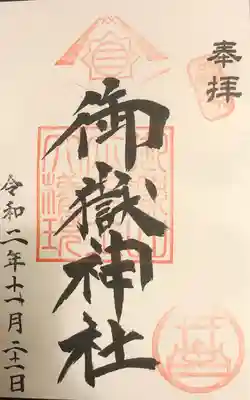 奉拝
御嶽神社
令和二年十一月二十二日